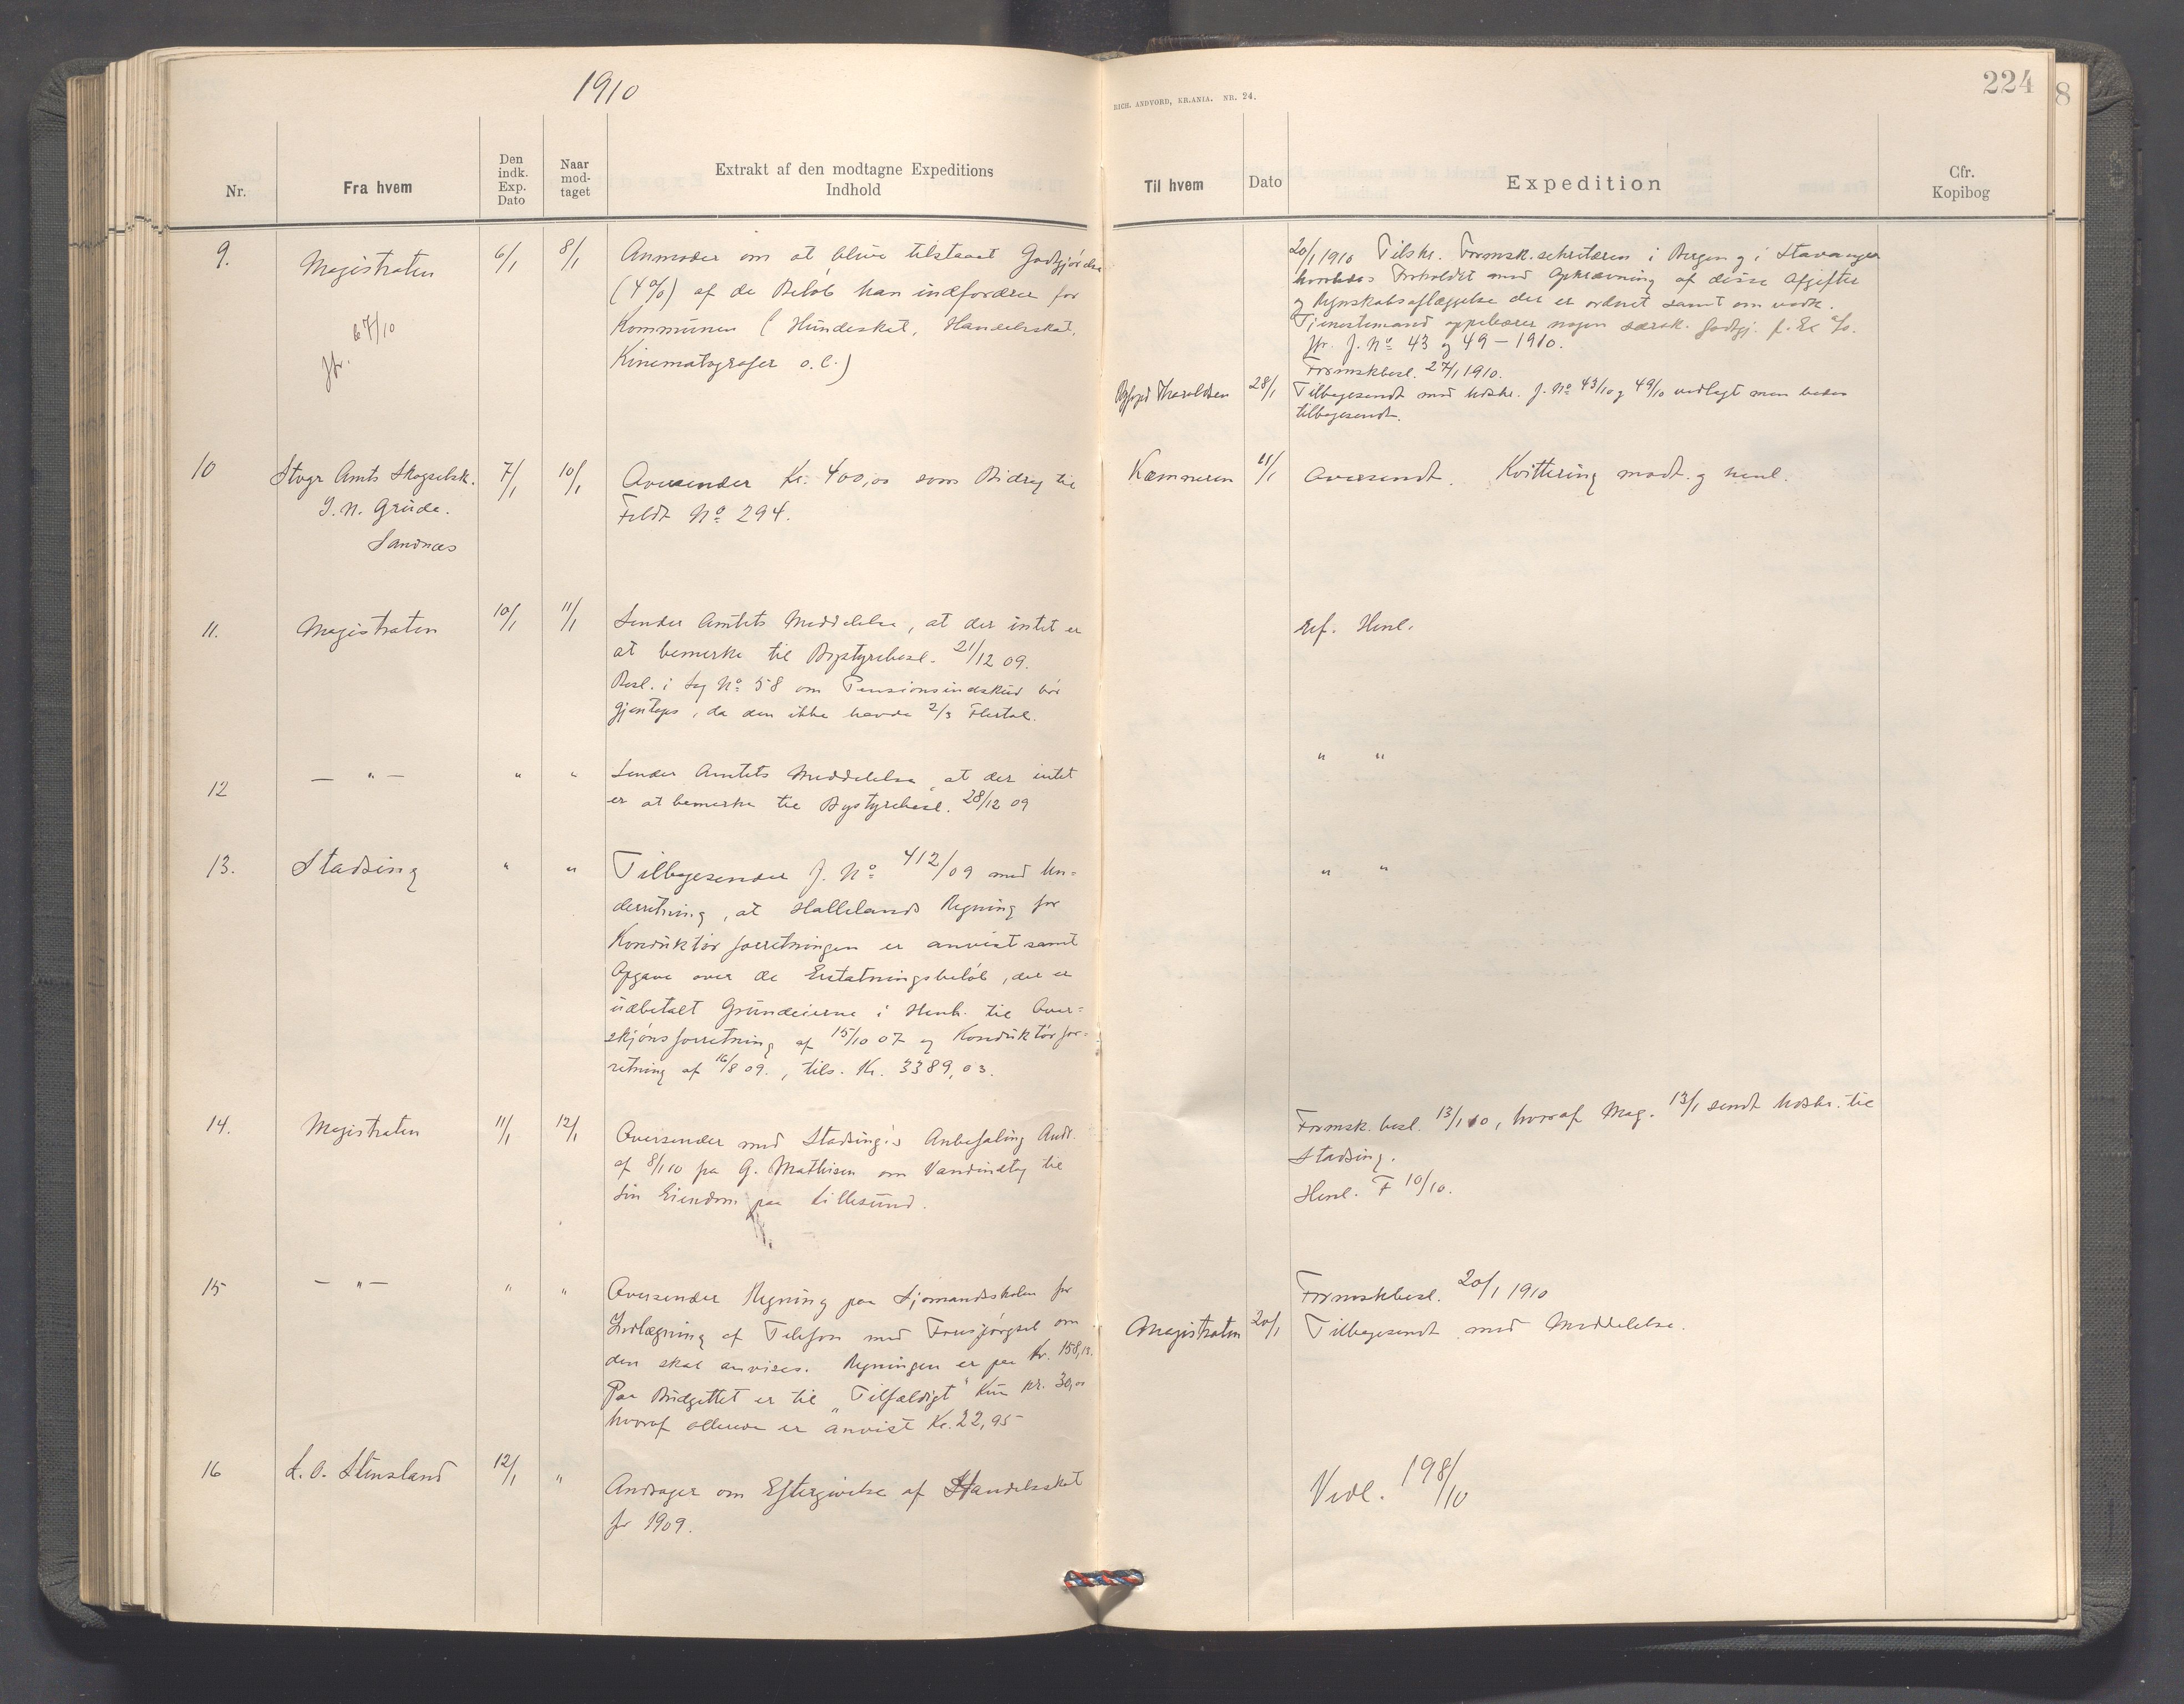 1910
Nr.
Fra hvem
Den indk. Exp. Dato
Naar mod- taget
Extrakt af den modtagne Expeditions Indhold
9.
Magistraten
6/1
8/1
Anmoder om at blive tilstaaet Godtgjørelse
(4%) af de Beløb han indfordrer for
Kommunen (Hundeskat, Handelsskat,
Kinematografer o.l.)
Jfr. 67/10
10
Stvgr Amts Skogselsk.
7/1
10/1
Oversender Kr. 400,00 som Bidrag til
S. N. Grude.
Feldt No 294.
Sandnæs
11.
Magistraten
10/1
11/1
Sender Amtets Meddelelse, at der intet er
at bemerke til Bystyrebesl. 21/12 09.
Besl. i Sag No 58 om Pensionsindskud bør
gjentages, da den ikke havde 2/3 Flertal.
12
— " —
"
"
Sender Amtets Meddelelse, at der intet
er at bemerke til Bystyrebesl. 28/12 09
13.
Stadsing
"
"
Tilbagesender J. No 412/09 med Un=
derretning, at Hallelands Regning for
Konduktørforretningen er anvist samt
Opgave over de Erstatningsbeløb, der er
udbetalt Grundeierne i Henh. til Over=
skjønsforretning af 15/10 07 og Konduktørfor=
retning af 16/8 09., tils. Kr. 3389,03.
14.
Magistraten
11/1
12/1
Oversender med Stadsing's Anbefaling Andr.
af 8/1 10 fra G. Mathisen om Vandindtag til
sin Eiendom paa Lillesund.
15
— " —
"
"
Oversender Regning paa Sjømandsskolen for
Indlægning af Telefon med Forespørgsel om
den skal anvises. Regningen er paa Kr. 158,13.
Paa Budgettet er til "Tilfældigt" kun Kr. 30,00
hvoraf allerede er anvist Kr. 22,95
16
L. O. Stensland
12/1
"
Andrager om Eftergivelse af Handelsskat
for 1909.
RICH. ANDVORD, KR.ANIA. NR. 24.
224
8
Til hvem
Dato
Expedition
Cfr. Kopibog
20/1 1910 Tilskr. Formsk.sekretæren i Bergen og i Stavanger
hvorledes Forholdet med Opkrævning af disse Afgifter
og Regnskabsaflæggelse der er ordnet samt om vedk.
Tjenestemand oppebærer nogen særsk. Godtgj. f. Ex %.
Jfr. J. No 43 og 49 – 1910.
Formskbesl. 27/1 1910.
Byfogd Haraldsen
28/1
Tilbagesendt med Udskr. J. No 43/10 og 49/10 vedlagt men bedes
tilbagesendt.
Kæmneren
11/1
Oversendt. Kvittering modt. og henl.
Ref. Henl.
" "
" "
Formsk. besl. 13/1 10, hvoraf Mag. 13/1 sendt Udskr. til
Stadsing.
Henl. F 10/10.
Formskbesl. 20/1 1910
Magistraten
20/1
Tilbagesendt med Meddelelse.
Vedl. 198/10